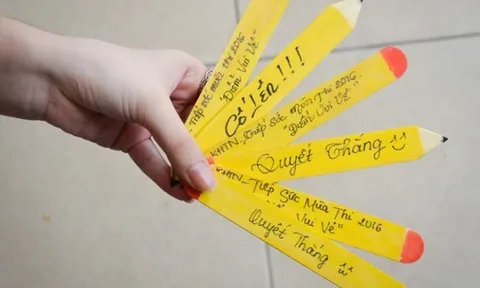 Tiếp sức mùa thi 2016
"Điểm Vui Vẻ"
Cố lên!!!
KHTN_Tiếp Sức Mùa Thi 2016
"Điểm Vui Vẻ"
Quyết Thắng
KHTN_Tiếp Sức Mùa Thi 2016
Vui Vẻ"
Quyết Thắng